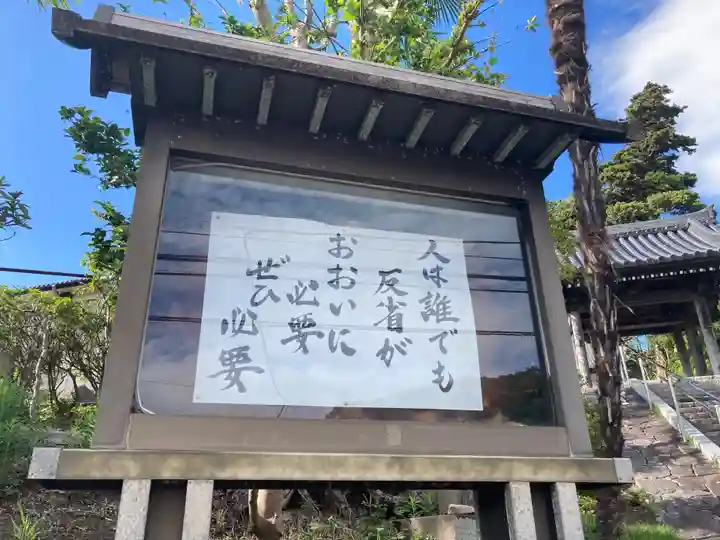 人は誰でも
反省が
おおいに
必要
ぜひ必要